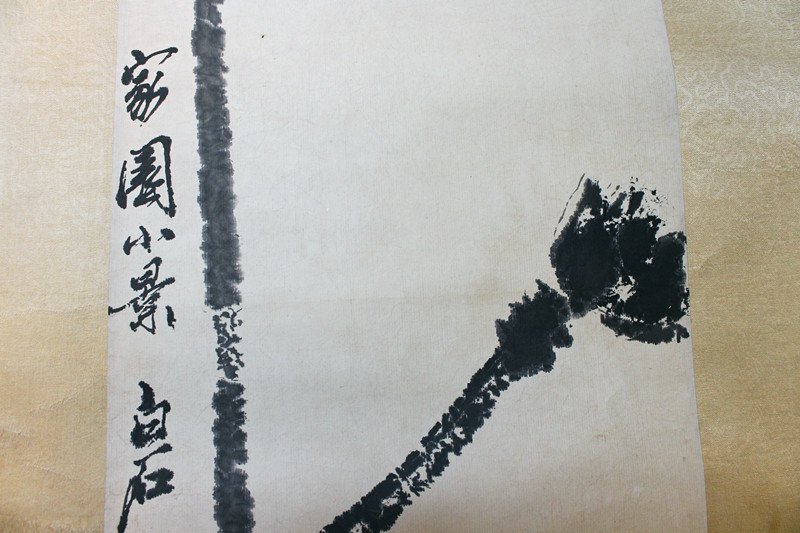 家園小景 白石